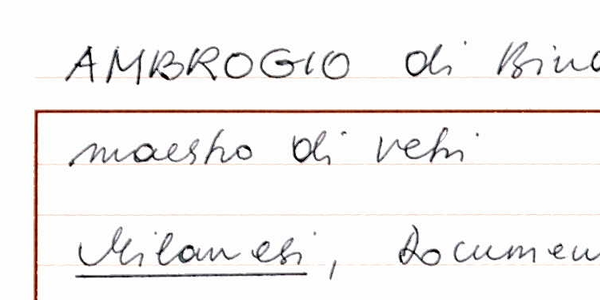 AMBROGIO di Bino
maestro di vetri
Milanesi, Documen